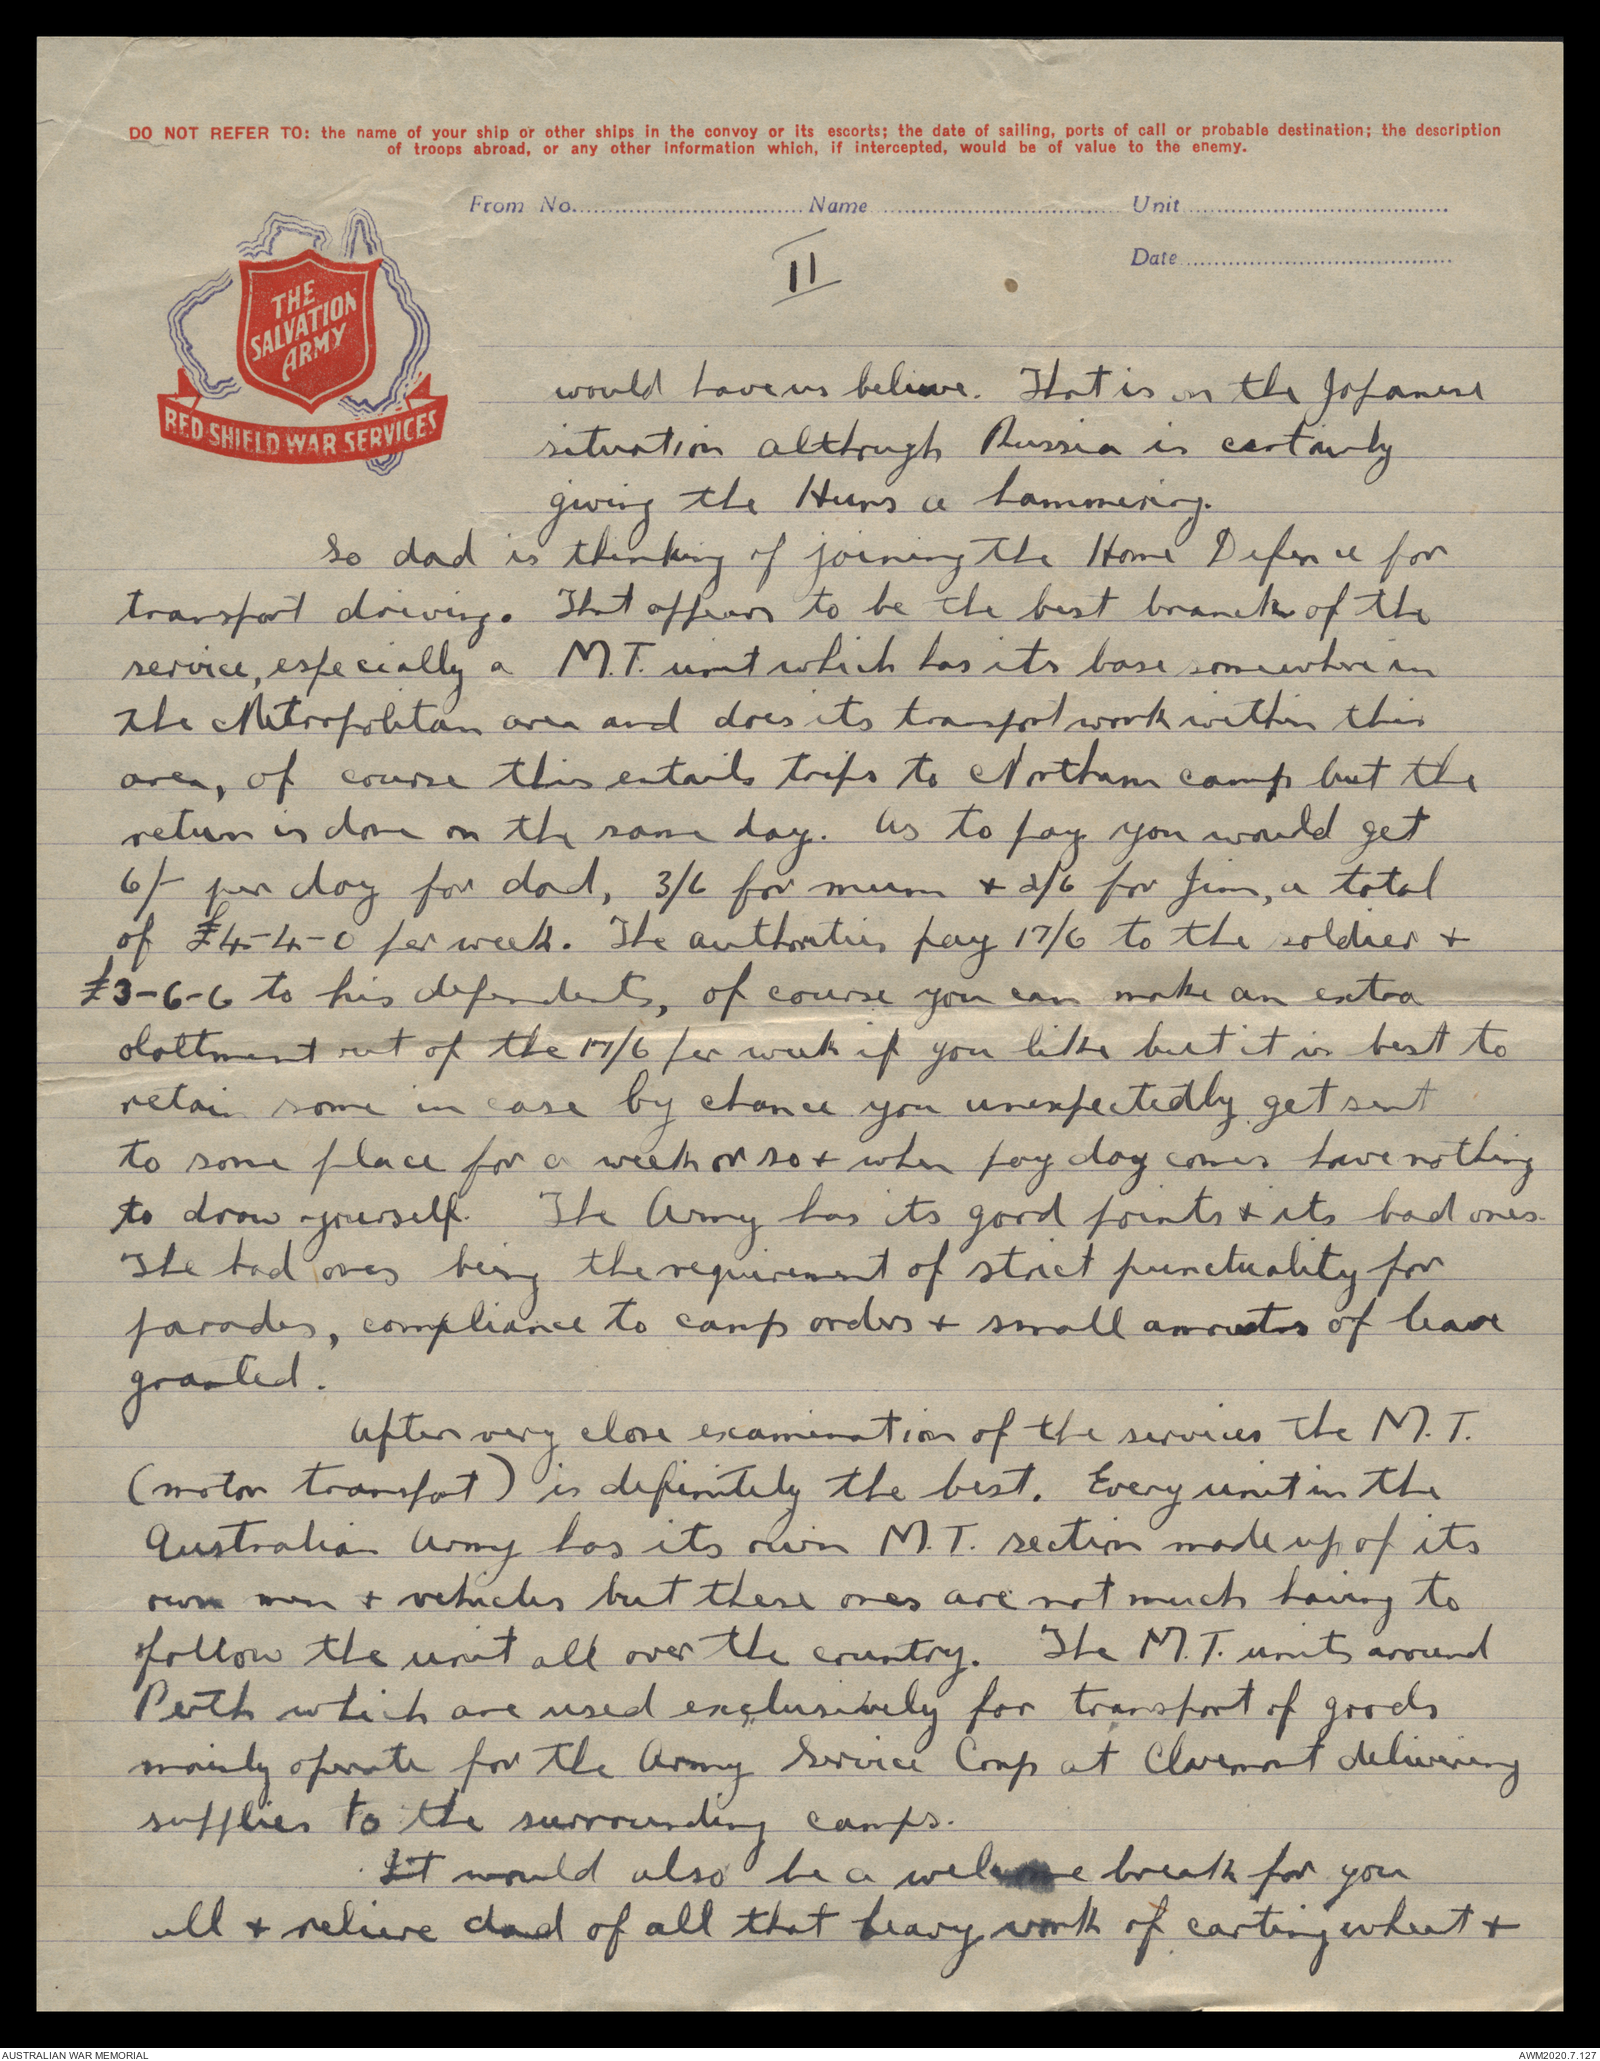 DO NOT REFER TO: the name of your ship or other ships in the convoy or its escorts; the date of sailing, ports of call or probable destination; the description
of troops abroad, or any other information which, if intercepted, would be of value to the enemy.
From No. Name Unit
Date
II
THE
SALVATION
ARMY
RED SHIELD WAR SERVICES
would have us believe. That is on the Japanese
situation although Russia is certainly
giving the Huns a hammering.
So dad is thinking of joining the Home Defence for
transport driving. That appears to be the best branch of the
service, especially a M.T. unit which has its base somewhere in
the Metropolitan area and does its transport work within this
area, of course this entails trips to Northam camp but the
return is done on the same day. As to pay you would get
6/- per day for dad, 3/6 for mum + 2/6 for Jim, a total
of £4-4-0 per week. The authorities pay 17/6 to the soldier +
£3-6-6 to his dependents, of course you can make an extra
olottment out of the 17/6 per week if you like but it is best to
retain some in case by chance you unexpectedly get sent
to some place for a week or so + when pay day comes have nothing
to draw yourself. The Army has its good points + its bad ones.
The bad ones being the requirement of strict punctuality for
parades, compliance to camp orders + small amounts of leave
granted.
After very close examination of the services the M.T.
(motor transport) is definitely the best. Every unit in the
Australian Army has its own M.T. section made up of its
own men + vehicles but these ones are not much having to
follow the unit all over the country. The M.T. units around
Perth which are used exclusively for transport of goods
mainly operate for the Army Service Corp at Claremont delivering
supplies to the surrounding camps.
It would also be a welcome break for you
all + relieve dad of all that heavy work of carting wheat +
AUSTRALIAN WAR MEMORIAL AWM2020.7.127